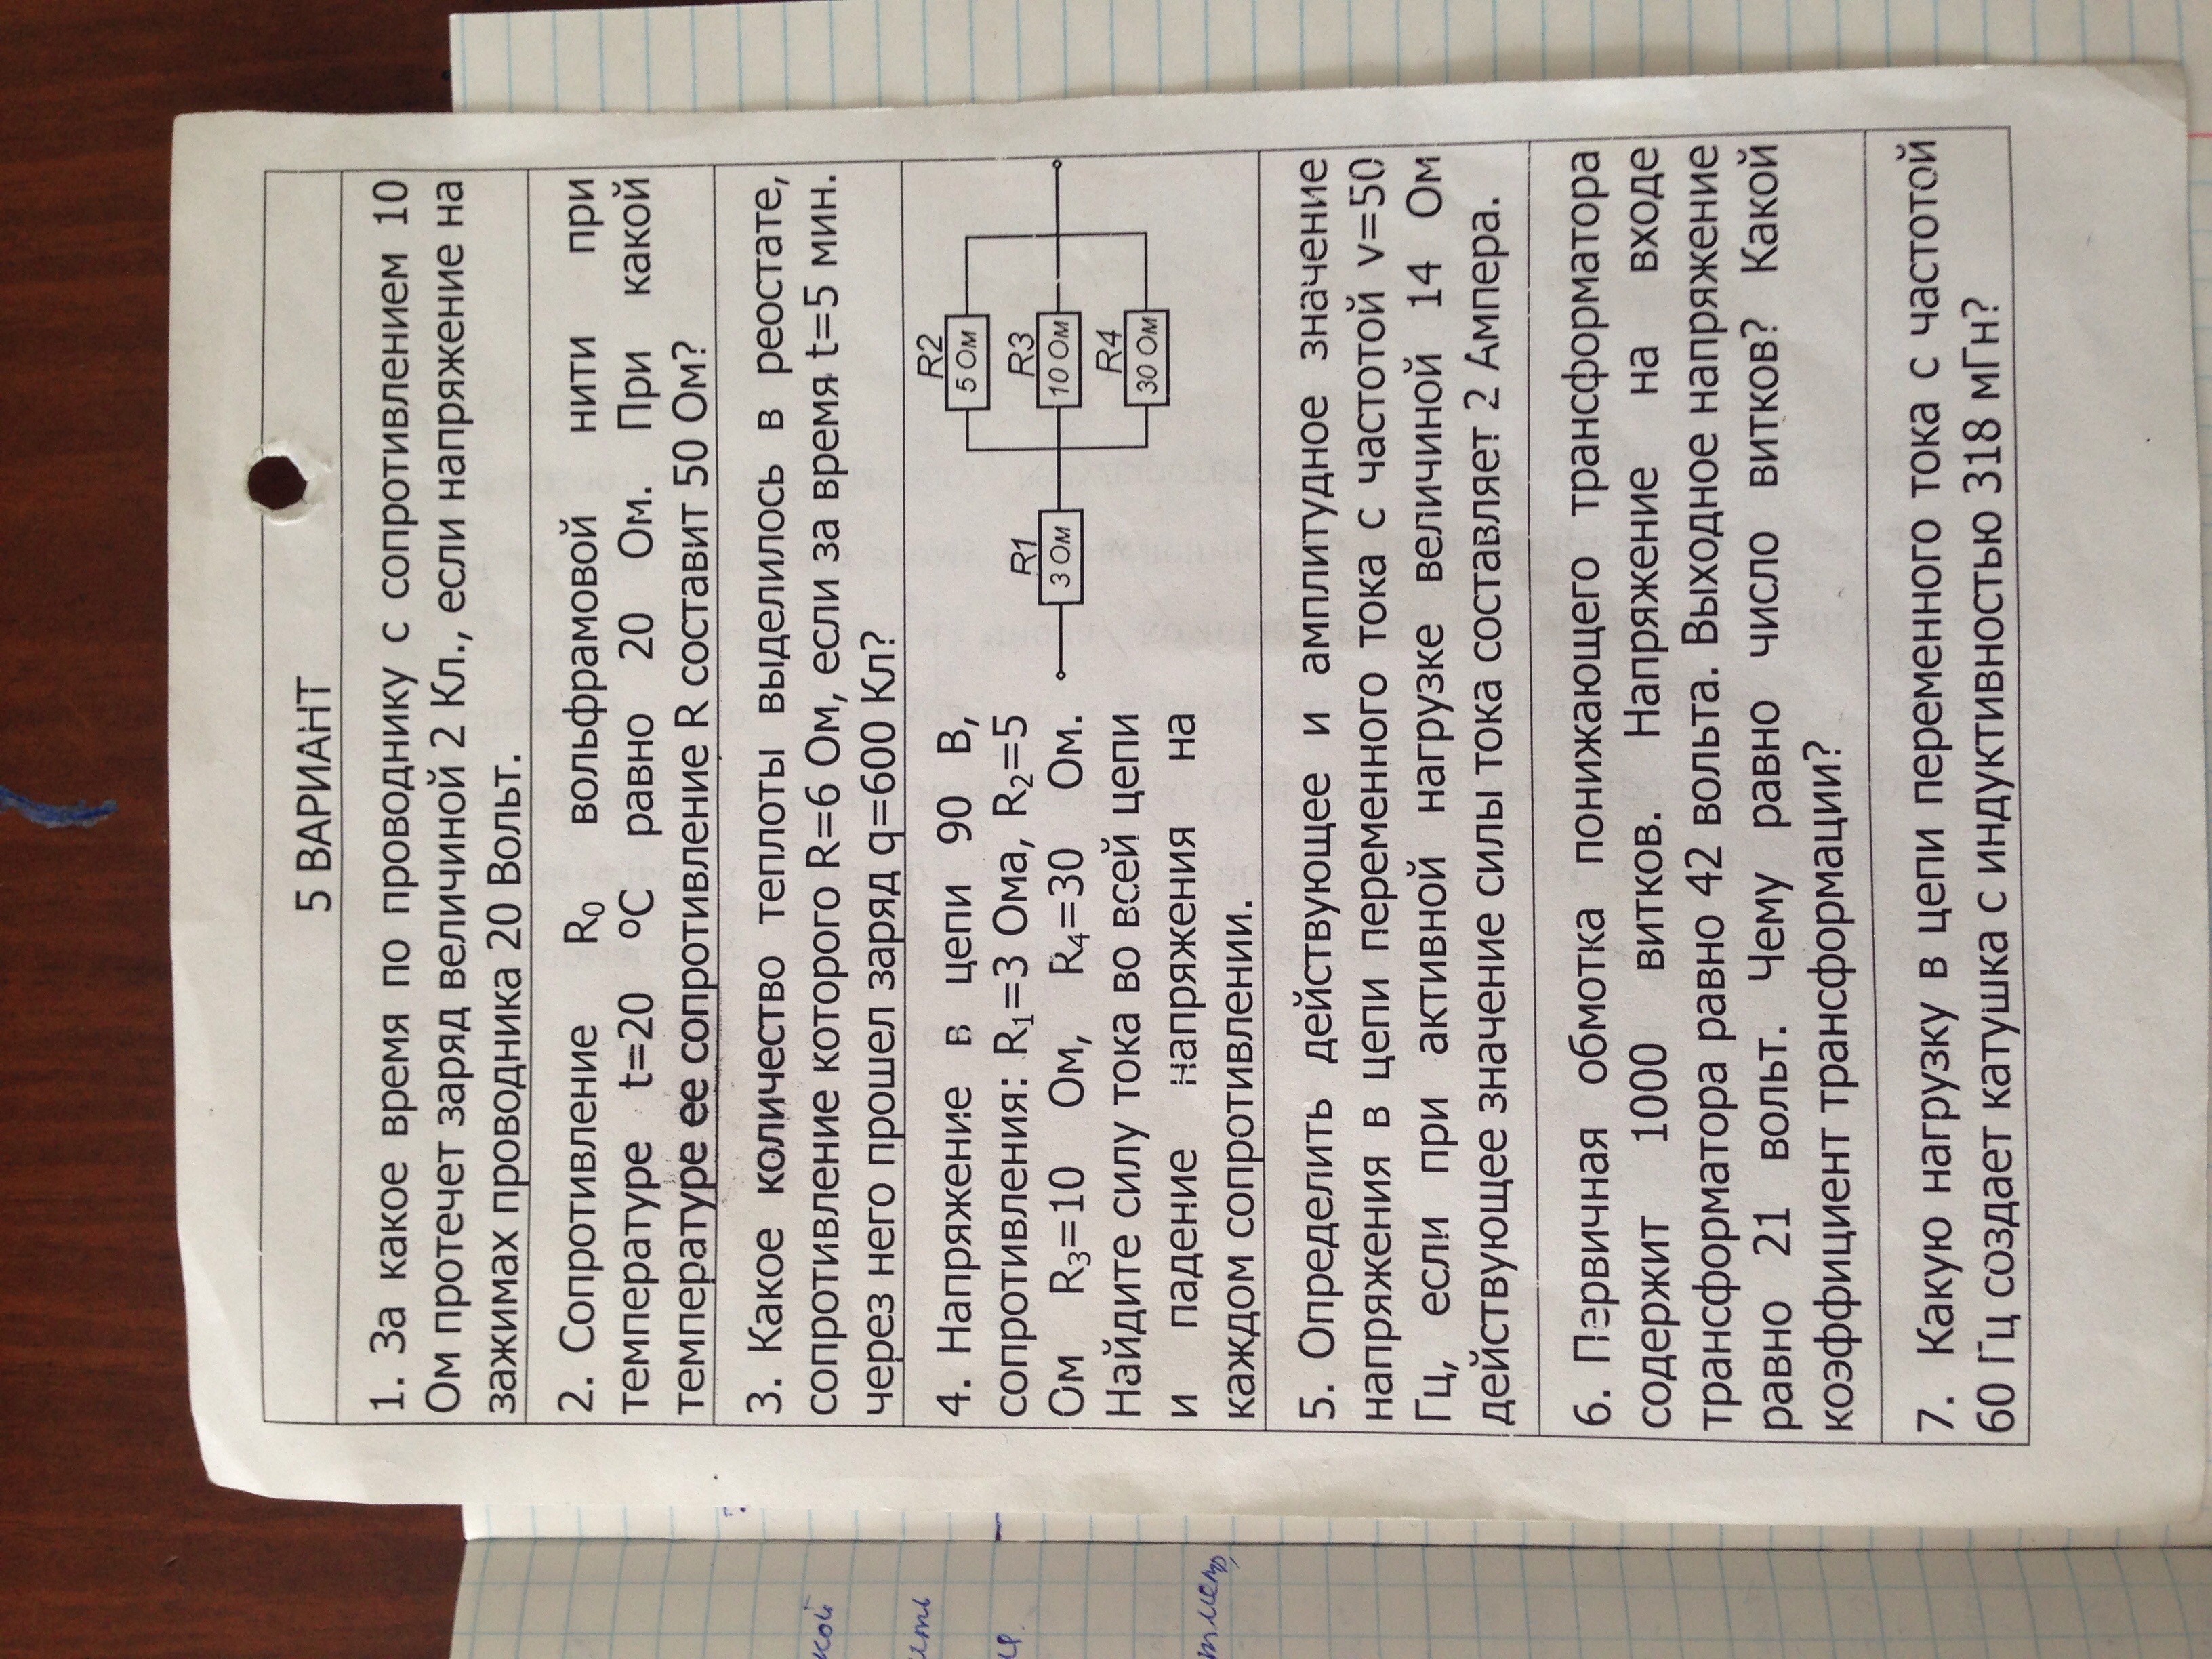 5 ВАРИАНТ
1. За какое время по проводнику с сопротивлением 10
Ом протечет заряд величиной 2 Кл., если напряжение на
зажимах проводника 20 Вольт.
2. Сопротивление R₀ вольфрамовой нити при
температуре t=20 оС равно 20 Ом. При какой
температуре ее сопротивление R составит 50 Ом?
3. Какое количество теплоты выделилось в реостате,
сопротивление которого R=6 Ом, если за время t=5 мин.
через него прошел заряд q=600 Кл?
4. Напряжение в цепи 90 В,
сопротивления: R₁=3 Ома, R₂=5
Ом R₃=10 Ом, R₄=30 Ом.
Найдите силу тока во всей цепи
и падение напряжения на
каждом сопротивлении.
R1
3 Ом
R2
5 Ом
R3
10 Ом
R4
30 Ом
5. Определить действующее и амплитудное значение
напряжения в цепи переменного тока с частотой ν=50
Гц, если при активной нагрузке величиной 14 Ом
действующее значение силы тока составляет 2 Ампера.
6. Первичная обмотка понижающего трансформатора
содержит 1000 витков. Напряжение на входе
трансформатора равно 42 вольта. Выходное напряжение
равно 21 вольт. Чему равно число витков? Какой
коэффициент трансформации?
7. Какую нагрузку в цепи переменного тока с частотой
60 Гц создает катушка с индуктивностью 318 мГн?
кой